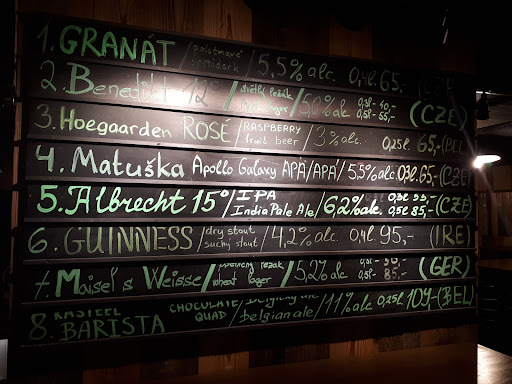 1. GRANÁT / polotmavé semidark / 5,5% alc. 0,4l 65,-
2. Benedikt 12° / světlý ležák / 5,0% alc. 0,3l - 40,- 0,5l - 55,- (CZE)
3. Hoegaarden ROSÉ / RASPBERRY fruit beer / 3% alc. 0,25l 65,- (BEL
4. Matuška Apollo Galaxy APA/APA / 5,5% alc. 0,3l 65,- (CZE
5. Albrecht 15° / IPA India Pale Ale / 6,2% alc. 0,5l 85,- (CZE)
6. GUINNESS / dry stout suchý stout / 4,2% alc. 0,4l 95,- (IRE)
7. Maisel's Weisse / wheat lager / 5,2% alc. 0,5l - 85,- (GER)
8. KASTEEL BARISTA CHOCOLATE QUAD / belgian ale / 11% alc. 0,25l 109,- (BEL)